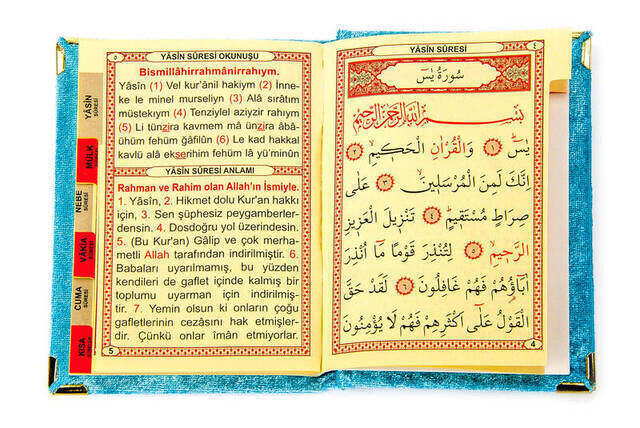 YÂSİN SÛRESİ
MÜLK
NEBE
SÛRESİ
VÂKIA
SÛRESİ
CUMA
SÛRESİ
KISA
٥
YÂSİN SÛRESİ OKUNUŞU
Bismillâhirrahmânirrahıym.
Yâsîn (1) Vel kur'ânil hakiym (2) İnne-
ke le minel murseliyn (3) Alâ sırâtım
müstekıym (4) Tenziylel aziyzir rahıym
(5) Li tünzira kavmem mâ ünzira âbâ-
ühüm fehüm ğâfilûn (6) Le kad hakkal
kavlü alâ ekserihim fehüm lâ yü'minûn
YÂSİN SÛRESİ ANLAMI
Rahman ve Rahim olan Allah'ın İsmiyle.
1. Yâsîn, 2. Hikmet dolu Kur'an hakkı
için, 3. Sen şüphesiz peygamberler-
densin. 4. Dosdoğru yol üzerindesin.
5. (Bu Kur'an) Gâlip ve çok merha-
metli Allah tarafından indirilmiştir. 6.
Babaları uyarılmamış, bu yüzden
kendileri de gaflet içinde kalmış bir
toplumu uyarman için indirilmiş-
tir. 7. Yemin olsun ki onların çoğu
gafletlerinin cezâsını hak etmişler-
dir. Çünkü onlar îmân etmiyorlar.
5
YÂSİN SÛRESİ
٤
سُورَةُ يٰسٓ
بِسْمِ اللّٰهِ الرَّحْمٰنِ الرَّحِيمِ
يٰسٓ ﴿١﴾ وَالْقُرْاٰنِ الْحَكِيمِ ﴿٢﴾
اِنَّكَ لَمِنَ الْمُرْسَلِينَ ﴿٣﴾ عَلٰى
صِرَاطٍ مُسْتَقِيمٍ ﴿٤﴾ تَنْزِيلَ الْعَزِيزِ
الرَّحِيمِ ﴿٥﴾ لِتُنْذِرَ قَوْمًا مَٓا اُنْذِرَ
اٰبَٓاؤُهُمْ فَهُمْ غَافِلُونَ ﴿٦﴾ لَقَدْ حَقَّ
الْقَوْلُ عَلٰٓى اَكْثَرِهِمْ فَهُمْ لَا يُؤْمِنُونَ
4